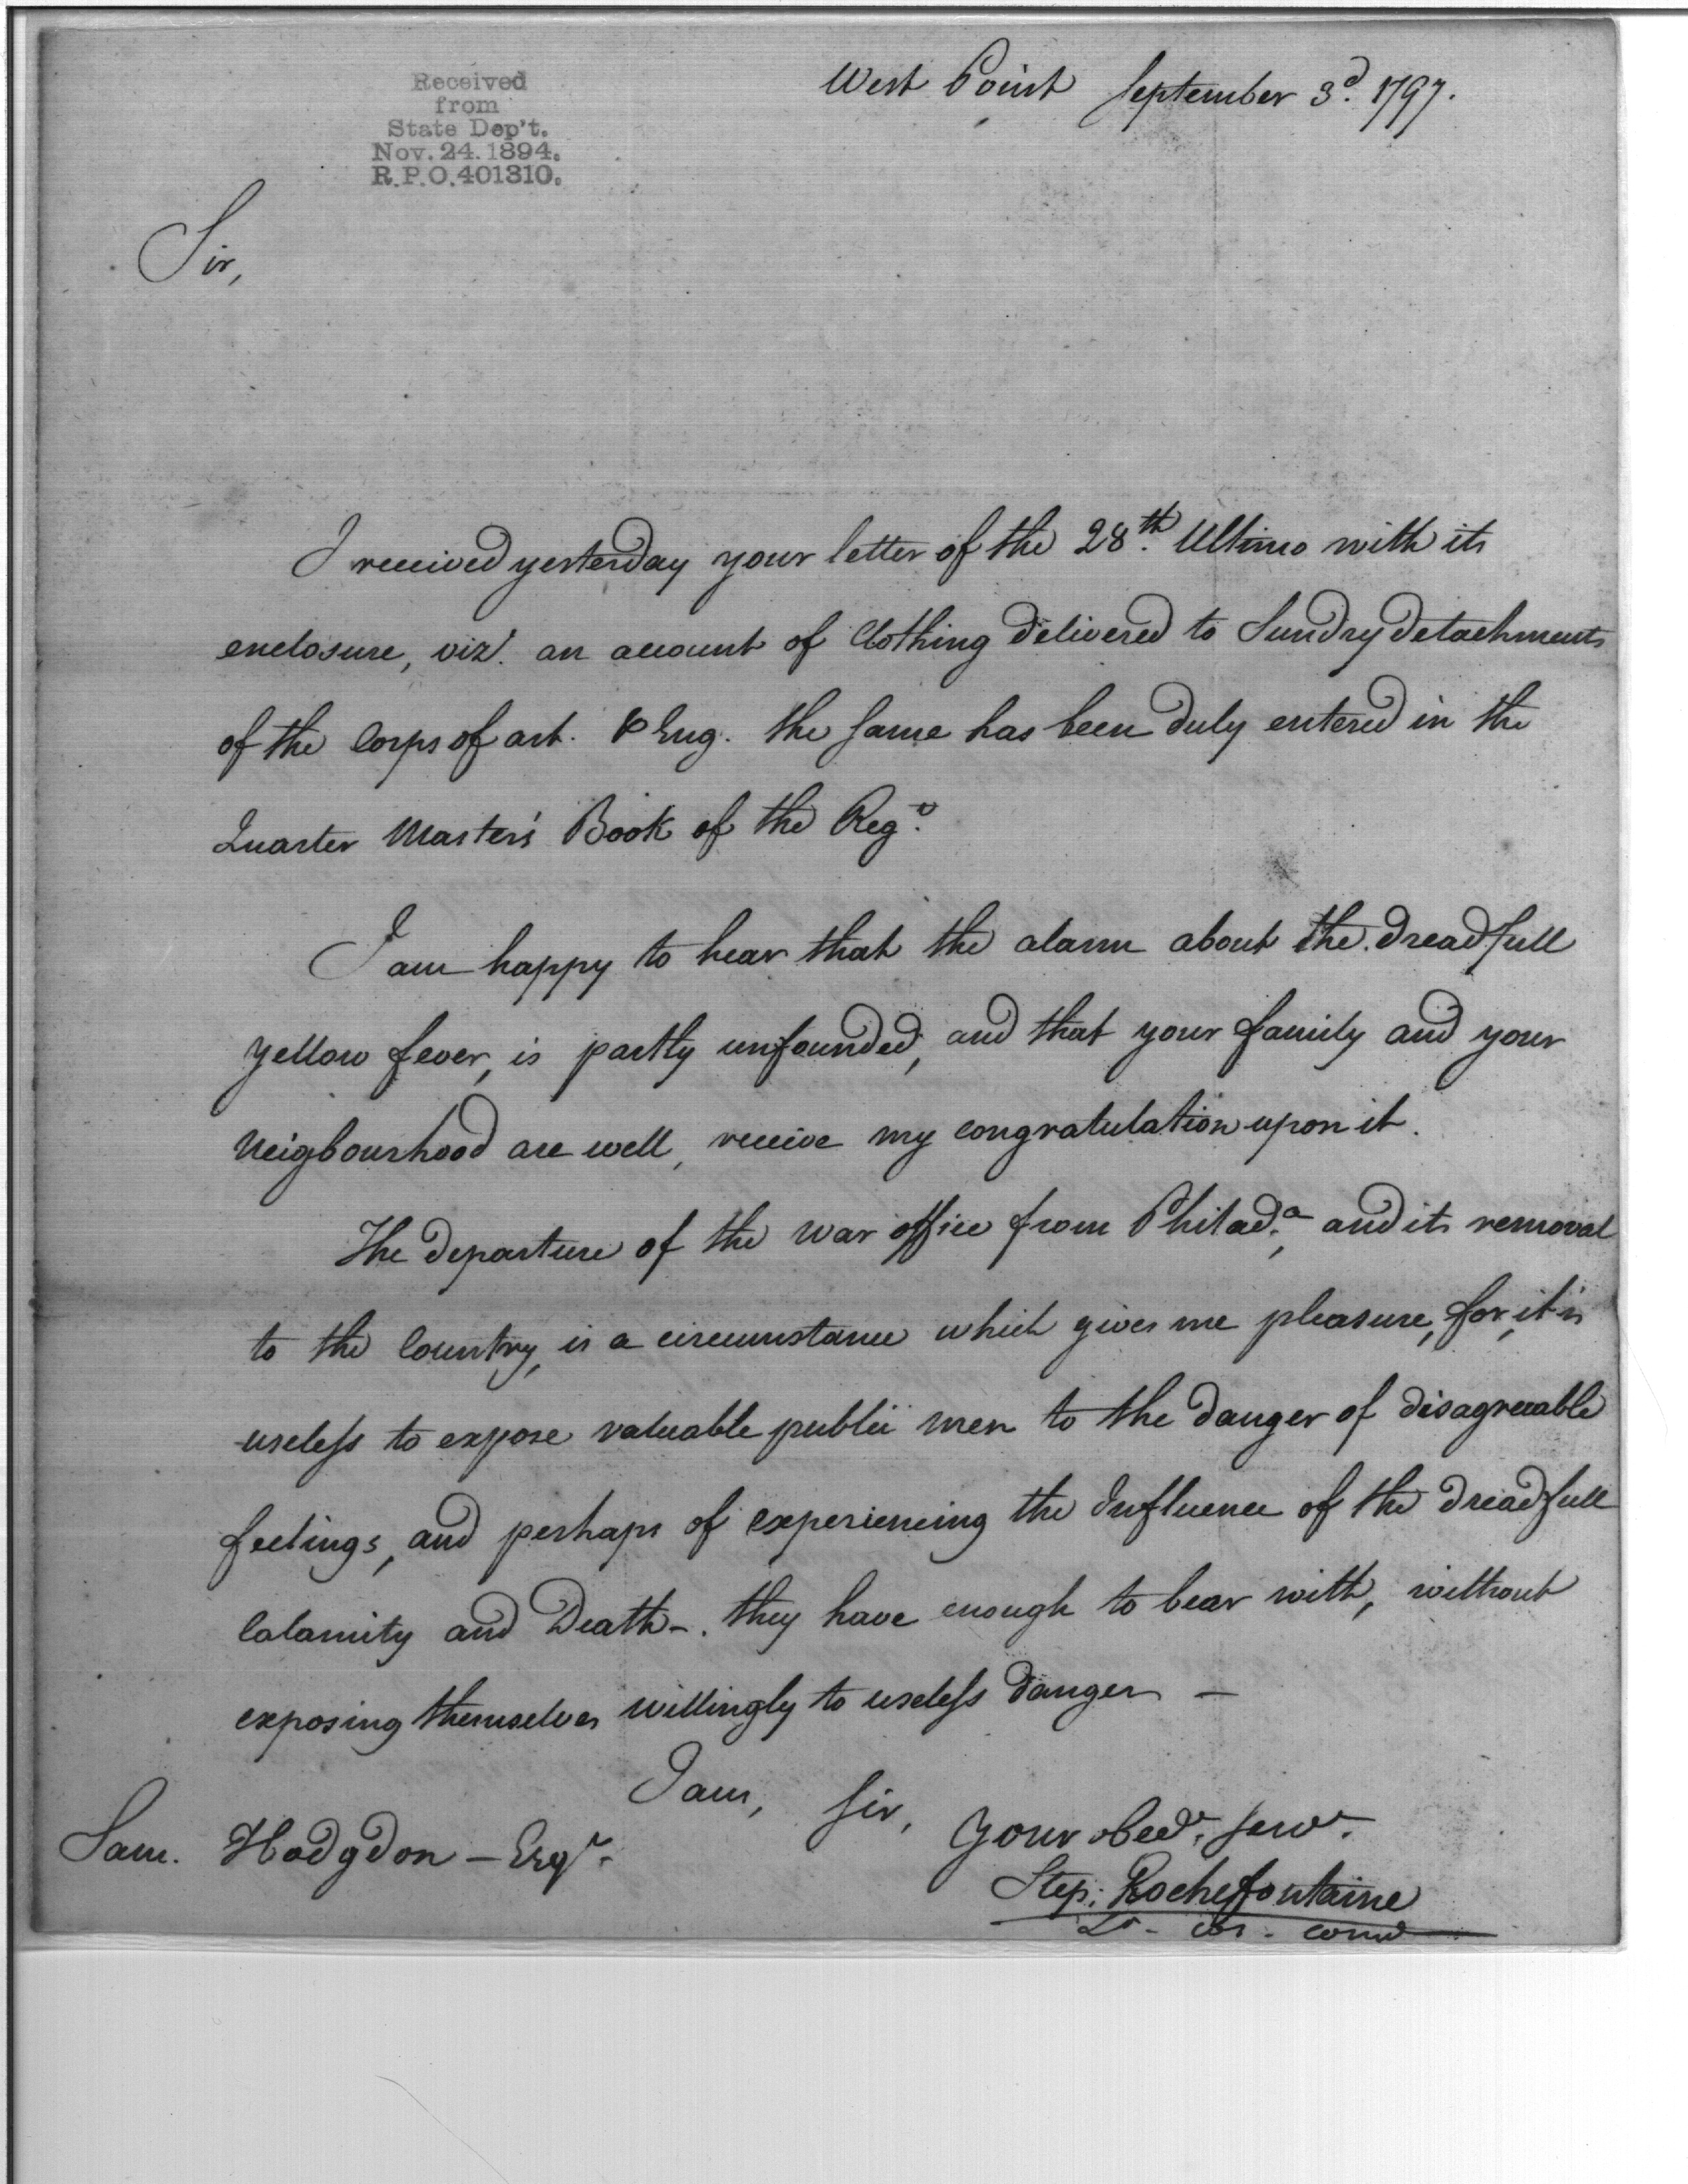 West Point September 3d. 1797.
Received
from
State Dep't.
Nov. 24. 1894.
R.P.O. 401310.
Sir,
I received yesterday your letter of the 28th. Ultimo with its
enclosure, vizt. an account of Clothing delivered to Sundry detachments
of the Corps of art. & Eng. the same has been duly entered in the
Quarter Master's Book of the Regt.
I am happy to hear that the alarm about the dreadfull
yellow fever, is partly unfounded, and that your family and your
Neigbourhood are well, receive my congratulation upon it.
The departure of the war office from Philada., and its removal
to the Country, is a circumstance which gives me pleasure, for, it is
useless to expose valuable public men to the danger of disagreeable
feelings, and perhaps of experiencing the Influence of the dreadfull
Calamity and Death-. they have enough to bear with, without
exposing themselves willingly to useless danger —
I am, Sir, your obedt. servt.
Sam. Hodgdon — Esqr.
Step: Rochefontaine
Lt. Col. Comd